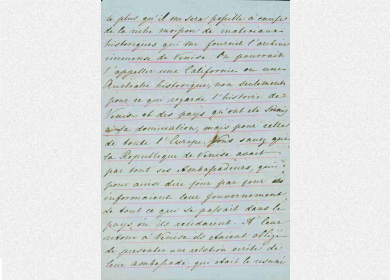 le plus qu'il me sera possible à
de la riche moisson de materiaux
historiques qui me fournit l'archive
immense de Venise. On pourrait
l'appeller une Californie ou une
Australie historique, non seulement
pour ce qui regarde l'histoire de
Venise et des pays qu'ont été
sa domination, mais pour celles
de toute l'Europe. Vous savez que
la Republique de Venise avait
par tout ses Ambassadeurs, qui
pour ainsi dire jour par jour
informaient leur Gouvernement
de tout ce qui se passait dans le
pays, où ils residaient. A leur
retour à Venise ils étaient obligés
de presenter une relation écrite de
leur ambassade, qui était le resumé